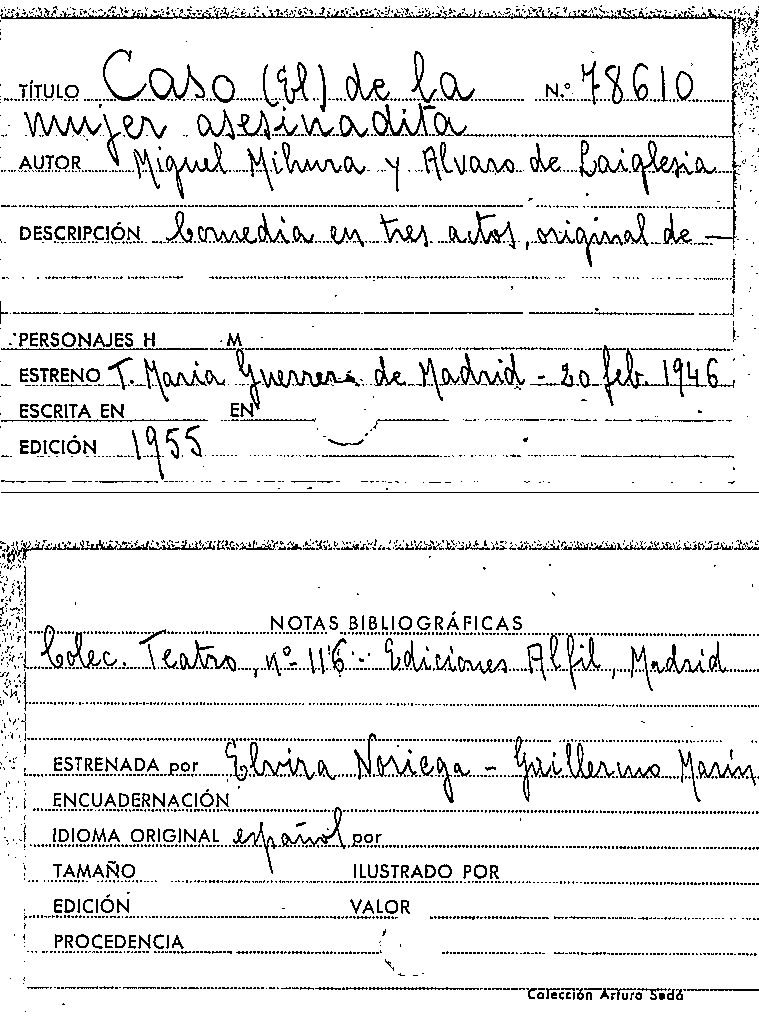 TÍTULO Caso (El) de la N.º 78610
mujer asesinadita
AUTOR Miguel Mihura y Alvaro de Laiglesia
DESCRIPCIÓN Comedia en tres actos, original de —
PERSONAJES H M
ESTRENO T. Maria Guerrero de Madrid - 20 feb. 1946
ESCRITA EN EN
EDICIÓN 1955
NOTAS BIBLIOGRÁFICAS
Colec. Teatro, nº 116 - Ediciones Alfil, Madrid
ESTRENADA por Elvira Noriega - Guillermo Marín
ENCUADERNACIÓN
IDIOMA ORIGINAL español por
TAMAÑO ILUSTRADO POR
EDICIÓN VALOR
PROCEDENCIA
Colección Arturo Sedó